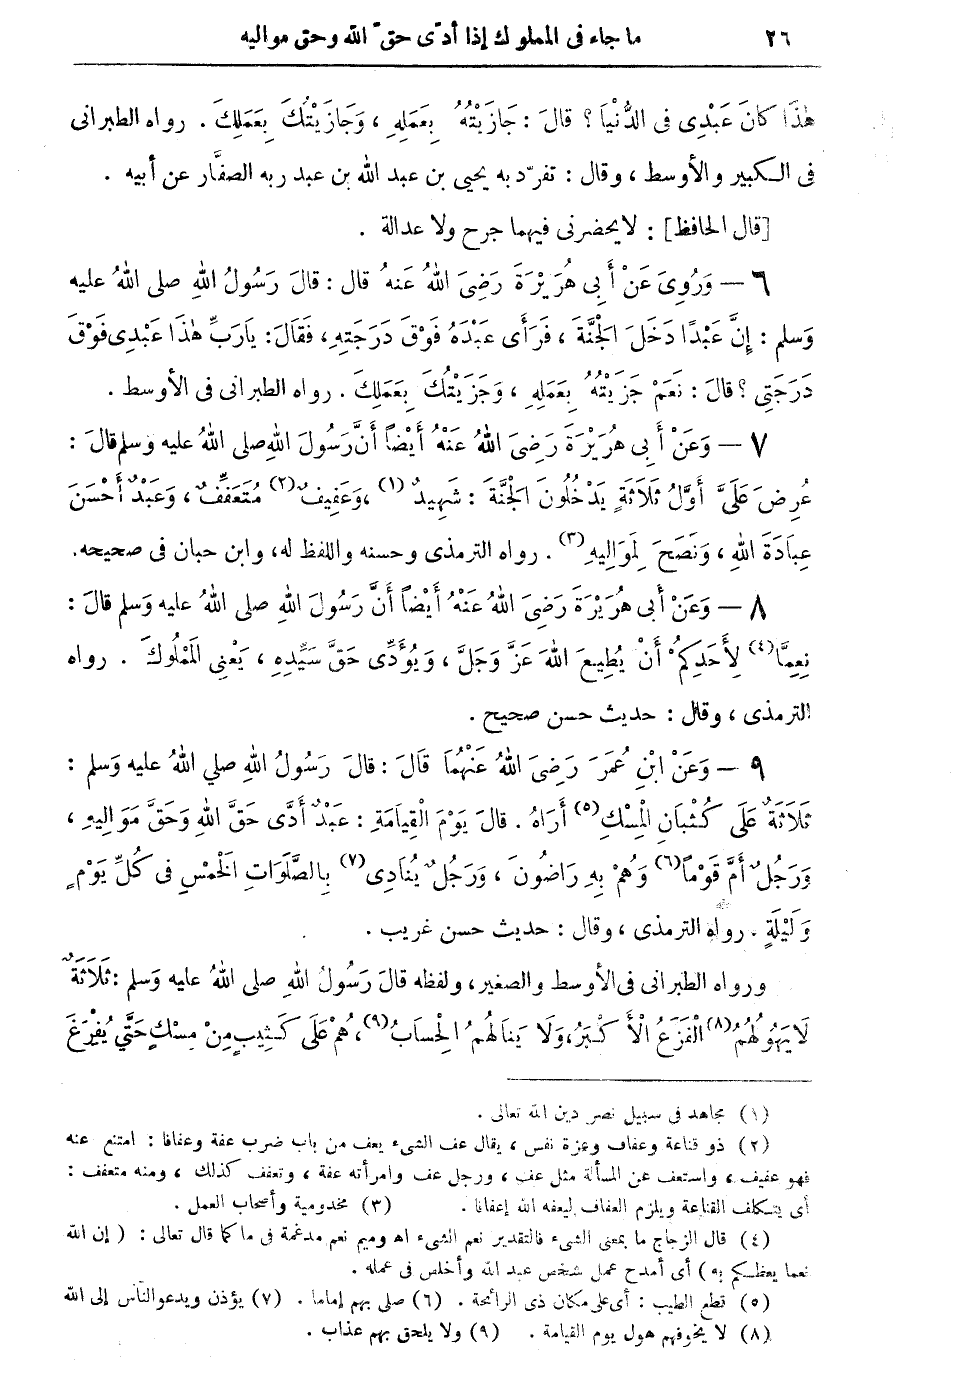 ٢٦ ما جاء فى المملوك إذا أدّى حقّ الله وحق مواليه
هٰذَا كَانَ عَبْدِى فى الدُّنْيَا؟ قالَ: جَازَيْتُهُ بِعَمَلِهِ، وَجَازَيْتُكَ بِعَمَلِكَ. رواه الطبرانى
فى الكبير والأوسط، وقال: تفرّد به يحيى بن عبد الله بن عبد ربه الصفَّار عن أبيه.
[قال الحافظ]: لا يحضرنى فيهما جرح ولا عدالة.
٦ — وَرُوِىَ عَنْ أَبِى هُرَيْرَةَ رَضِىَ اللهُ عَنهُ قال: قالَ رَسُولُ اللهِ صلى اللهُ عليه
وَسلم: إِنَّ عَبْدًا دَخَلَ الجَنَّةَ، فَرَأَى عَبْدَهُ فَوْقَ دَرَجَتِهِ، فَقَالَ: يَارَبِّ هٰذَا عَبْدِى فَوْقَ
دَرَجَتِى؟ قالَ: نَعَمْ جَزَيْتُهُ بِعَمَلِهِ، وَجَزَيْتُكَ بِعَمَلِكَ. رواه الطبرانى فى الأوسط.
٧ — وَعَنْ أَبِى هُرَيْرَةَ رَضِىَ اللهُ عَنْهُ أَيْضاً أَنَّ رَسُولَ اللهِ صلى اللهُ عليه وَسلم قالَ:
عُرِضَ عَلَىَّ أَوَّلُ ثَلَاثَةٍ يَدْخُلُونَ الجَنَّةَ: شَهِيدٌ (١)، وَعَفِيفٌ (٢) مُتَعَفِّفٌ، وَعَبْدٌ أَحْسَنَ
عِبَادَةَ اللهِ، وَنَصَحَ لِمَوَالِيهِ (٣). رواه الترمذى وحسنه واللفظ له، وابن حبان فى صحيحه.
٨ — وَعَنْ أَبى هُرَيْرَةَ رَضِىَ اللهُ عَنْهُ أَيْضاً أَنَّ رَسُولَ اللهِ صلى اللهُ عليه وَسلم قالَ:
نِعِمَّا (٤) لِأَحَدِكُمْ أَنْ يُطِيعَ اللهَ عَزَّ وَجَلَّ، وَيُؤَدِّىَ حَقَّ سَيِّدِهِ، يَعْنِى المَمْلُوكَ. رواه
الترمذى، وقال: حديث حسن صحيح.
٩ — وَعَنْ ابْنِ عُمَرَ رَضِىَ اللهُ عَنْهُمَا قَالَ: قالَ رَسُولُ اللهِ صلي اللهُ عليه وَسلم:
ثَلَاثَةٌ عَلَى كُثْبَانِ المِسْكِ (٥) أَرَاهُ. قالَ يَوْمَ الْقِيَامَةِ: عَبْدٌ أَدَّى حَقَّ اللهِ وَحَقَّ مَوَالِيهِ،
وَرَجُلٌ أَمَّ قَوْماً (٦) وَهُمْ بِهِ رَاضُونَ، وَرَجُلٌ يُنَادِى (٧) بِالصَّلَوَاتِ الخَمْسِ فى كُلِّ يَوْمٍ
وَلَيْلَةٍ. رواه الترمذى، وقال: حديث حسن غريب.
ورواه الطبرانى فى الأوسط والصغير، ولفظه قالَ رَسُولُ اللهِ صلى اللهُ عليه وَسلم: ثَلَاثَةٌ
لَا يَهُولُهُمُ (٨) الْفَزَعُ الْأَكْبَرُ، وَلَا يَنَالُهُمُ الْحِسَابُ (٩)، هُمْ عَلَى كَثِيبٍ مِنْ مِسْكٍ حَتَّى يُفْرَغَ
(١) مجاهد فى سبيل نصر دين الله تعالى.
(٢) ذو قناعة وعفاف وعزة نفس، يقال عف الشىء يعف من باب ضرب عفة وعفافا: امتنع عنه
فهو عفيف، واستعف عن المسألة مثل عف، ورجل عف وامرأته عفة، وتعفف كذلك، ومنه متعفف:
أى يتكلف القناعة ويلزم العفاف ليعفه الله إعفافا. (٣) مخدومية وأصحاب العمل.
(٤) قال الزجاج ما بمعنى الشىء فالتقدير نعم الشىء اه وميم نعم مدغمة فى ما كما قال تعالى: (إن الله
نعما يعظكم به) أى أمدح عمل شخص عبد الله وأخلص فى عمله.
(٥) قطع الطيب: أى على مكان ذى الرائحة. (٦) صلى بهم إماما. (٧) يؤذن ويدعو الناس إلى الله
(٨) لا يخوفهم هول يوم القيامة. (٩) ولا يلحق بهم عذاب.